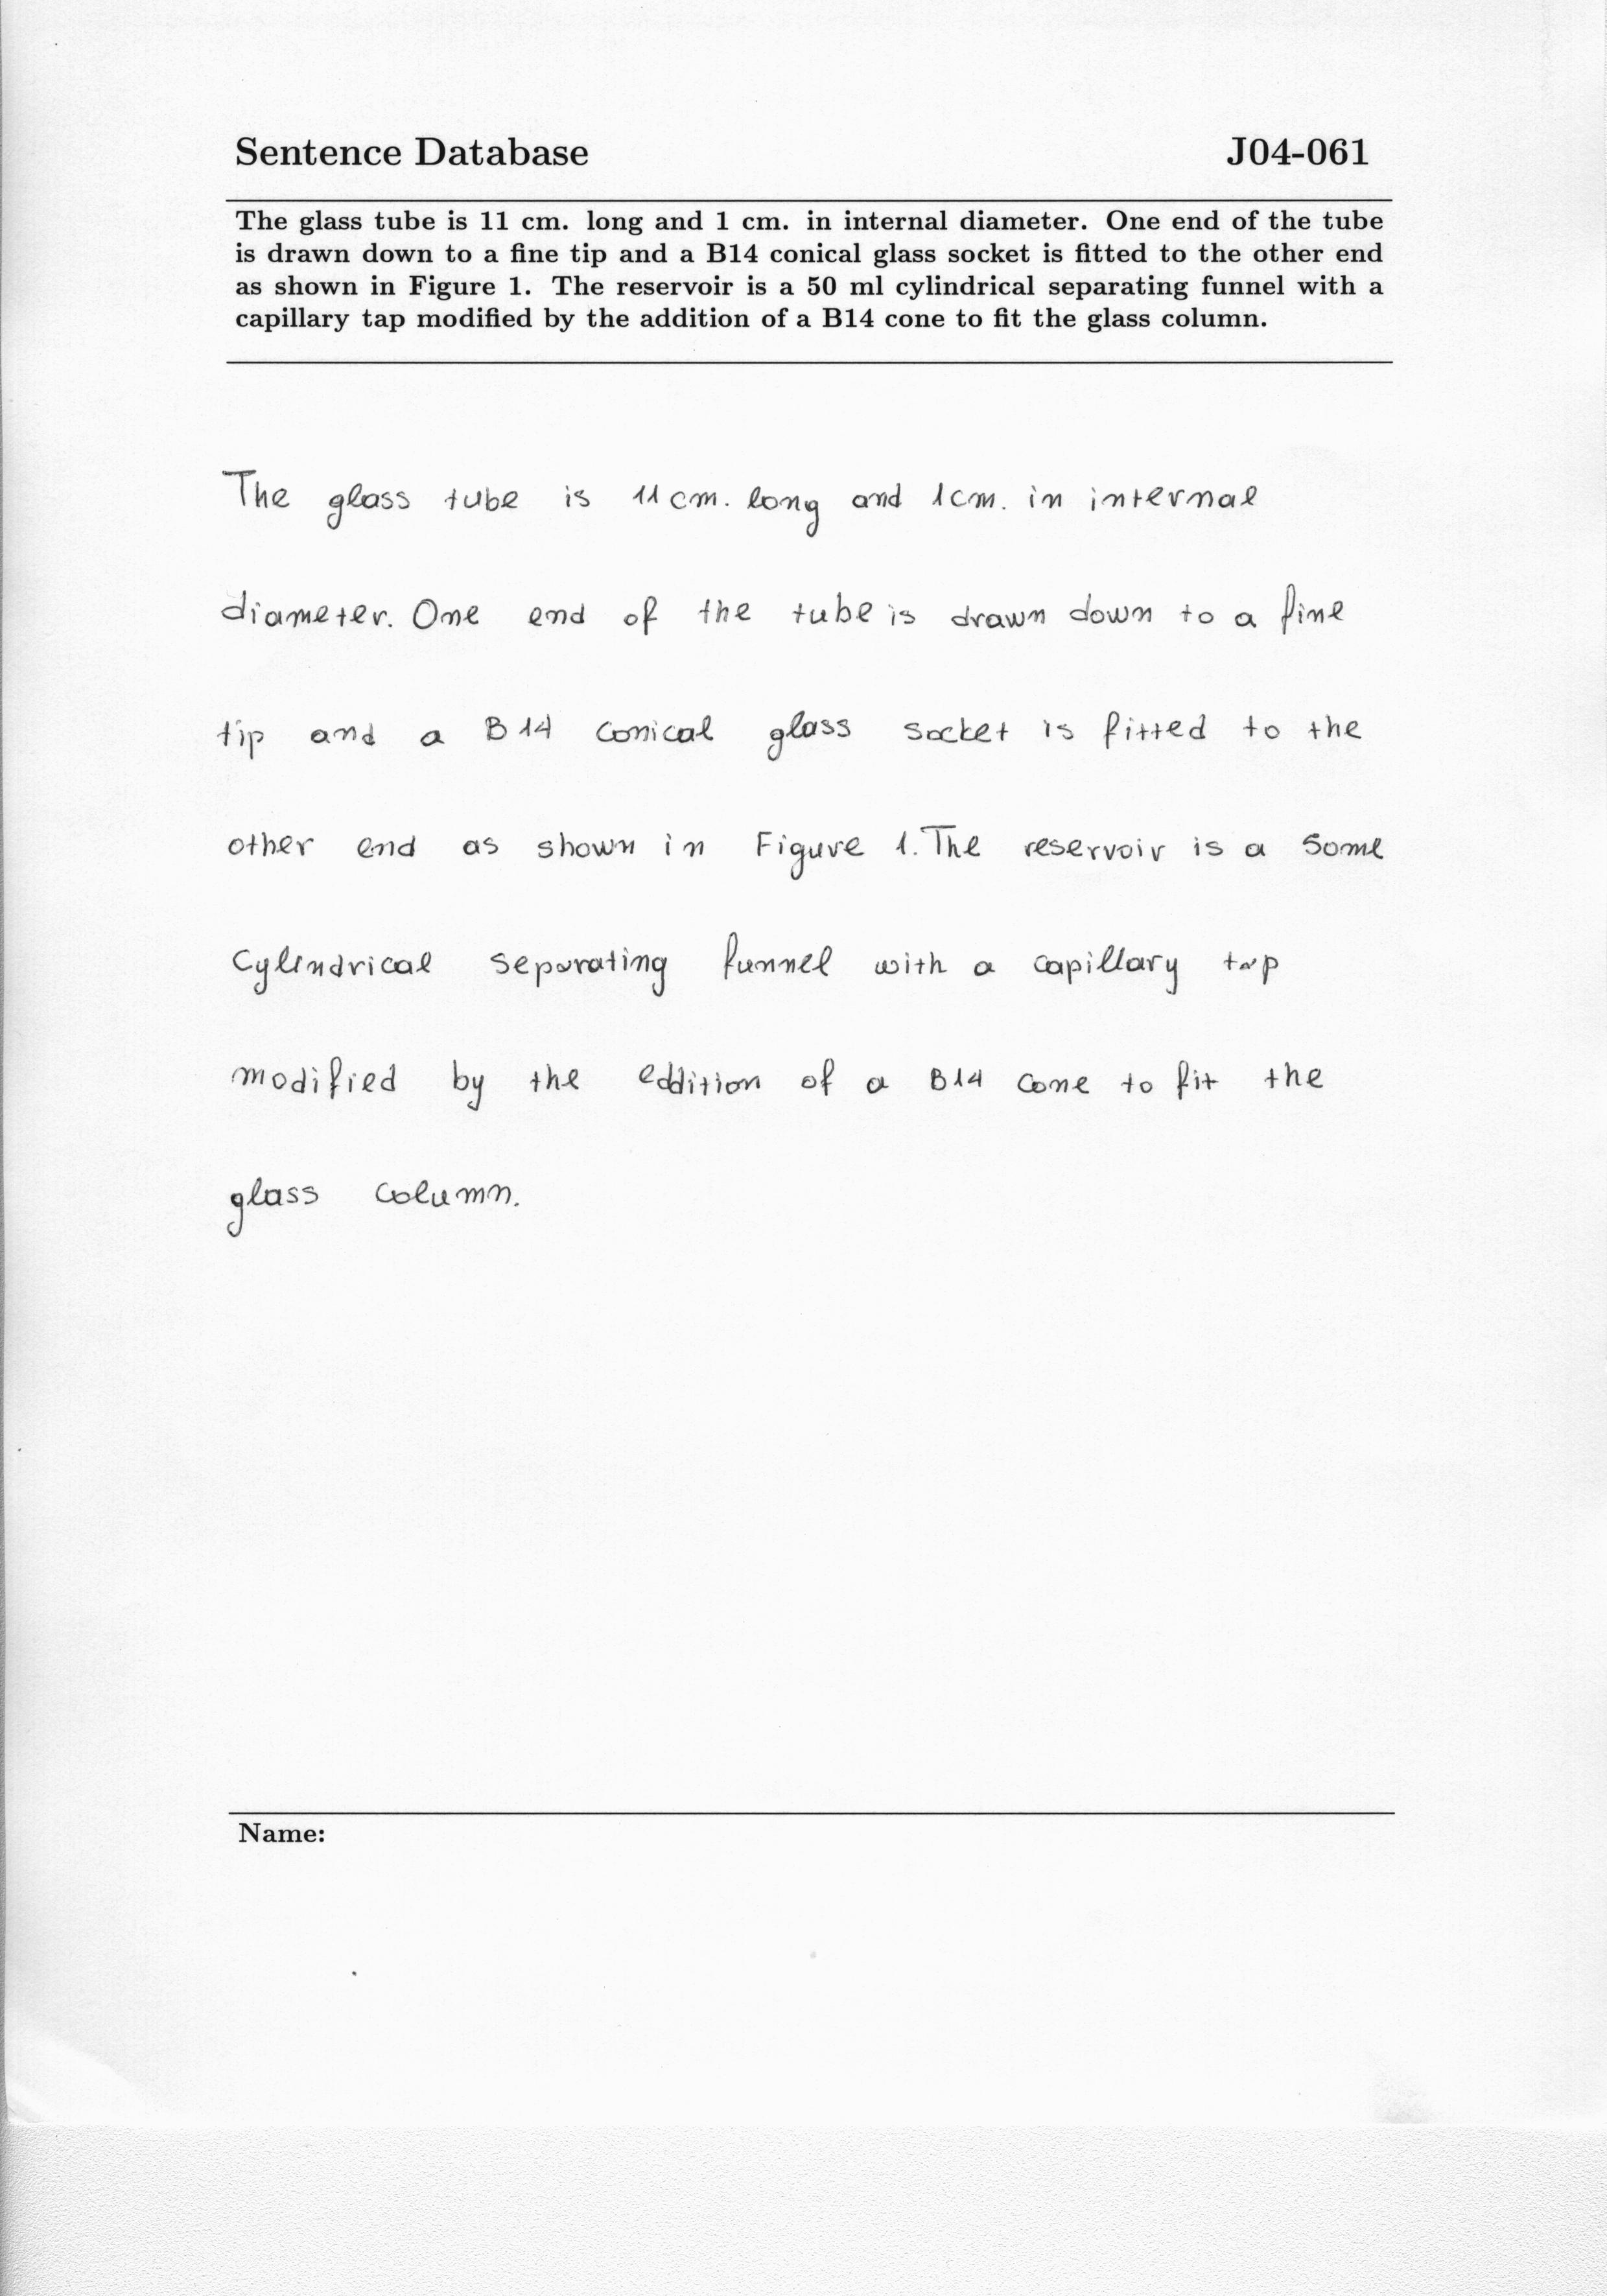 Sentence Database J04-061
The glass tube is 11 cm. long and 1 cm. in internal diameter. One end of the tube
is drawn down to a fine tip and a B14 conical glass socket is fitted to the other end
as shown in Figure 1. The reservoir is a 50 ml cylindrical separating funnel with a
capillary tap modified by the addition of a B14 cone to fit the glass column.
The glass tube is 11cm. long and 1cm. in internal
diameter. One end of the tube is drawn down to a fine
tip and a B14 conical glass socket is fitted to the
other end as shown in Figure 1. The reservoir is a some
cylindrical separating funnel with a capillary tap
modified by the eddition of a B14 cone to fit the
glass column.
Name: